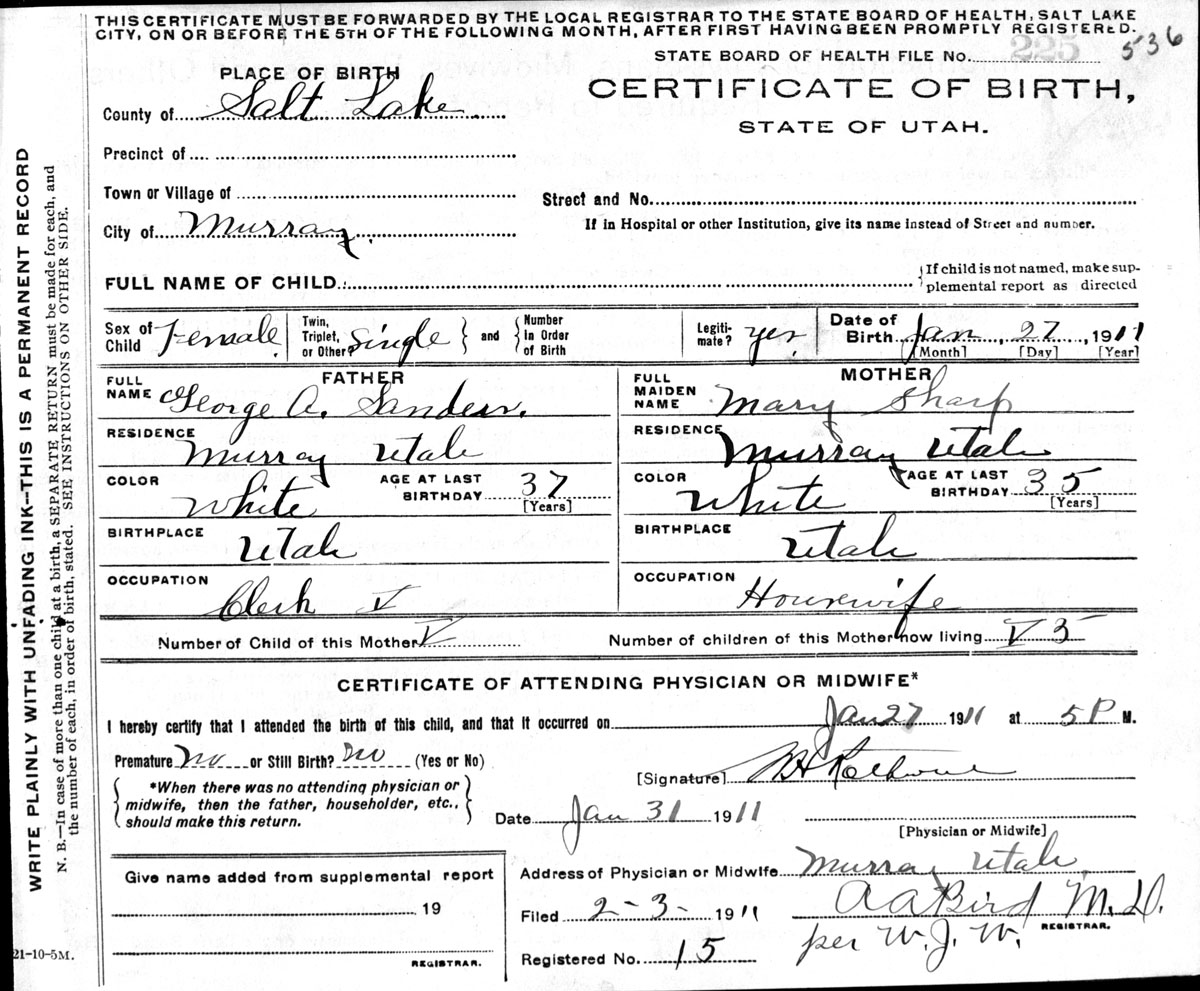 THIS CERTIFICATE MUST BE FORWARDED BY THE LOCAL REGISTRAR TO THE STATE BOARD OF HEALTH, SALT LAKE
CITY, ON OR BEFORE THE 5TH OF THE FOLLOWING MONTH, AFTER FIRST HAVING BEEN PROMPTLY REGISTERED.
STATE BOARD OF HEALTH FILE No. 225 536
PLACE OF BIRTH
CERTIFICATE OF BIRTH,
County of Salt Lake
STATE OF UTAH.
Precinct of
Town or Village of
Street and No.
City of Murray.
If in Hospital or other Institution, give its name instead of Street and number.
FULL NAME OF CHILD
If child is not named, make sup-
plemental report as directed
Sex of Child Female. Twin, Triplet, or Other? single and Number In Order of Birth Legiti-mate? yes Date of Birth Jan, 27, 1911
[Month] [Day] [Year]
FATHER MOTHER
FULL NAME George A. Sanders. FULL MAIDEN NAME Mary Sharp
RESIDENCE Murray Utah RESIDENCE Murray Utah
COLOR White AGE AT LAST BIRTHDAY 37 [Years] COLOR White AGE AT LAST BIRTHDAY 35 [Years]
BIRTHPLACE Utah BIRTHPLACE Utah
OCCUPATION Clerk V OCCUPATION Housewife
Number of Child of this Mother V Number of children of this Mother now living V 5
CERTIFICATE OF ATTENDING PHYSICIAN OR MIDWIFE*
I hereby certify that I attended the birth of this child, and that it occurred on Jan 27 1911 at 5 P M.
Premature No or Still Birth? No (Yes or No)
[Signature]
*When there was no attending physician or
midwife, then the father, householder, etc.,
should make this return.
Date Jan 31 1911
[Physician or Midwife]
Give name added from supplemental report
19
REGISTRAR.
Address of Physician or Midwife Murray Utah
Filed 2-3- 1911 A A Bird M.D.
REGISTRAR.
per W. J. W.
Registered No. 15
21-10-5M.
WRITE PLAINLY WITH UNFADING INK--THIS IS A PERMANENT RECORD
N. B.—In case of more than one child at a birth, a SEPARATE RETURN must be made for each, and
the number of each, in order of birth, stated. SEE INSTRUCTIONS ON OTHER SIDE.